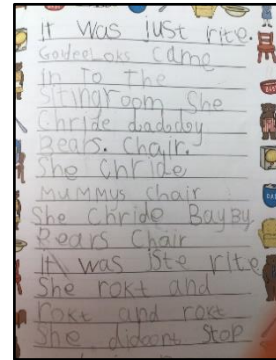 It was just rite.
Goldeeloks came
in to the
sitingroom She
Chride dadday
Bears. Chair.
She Chride
MuMMus Chair
She Chride BayBy
Bears Chair
It was jste rite
She rokt and
rokt and rokt
She didount Stop